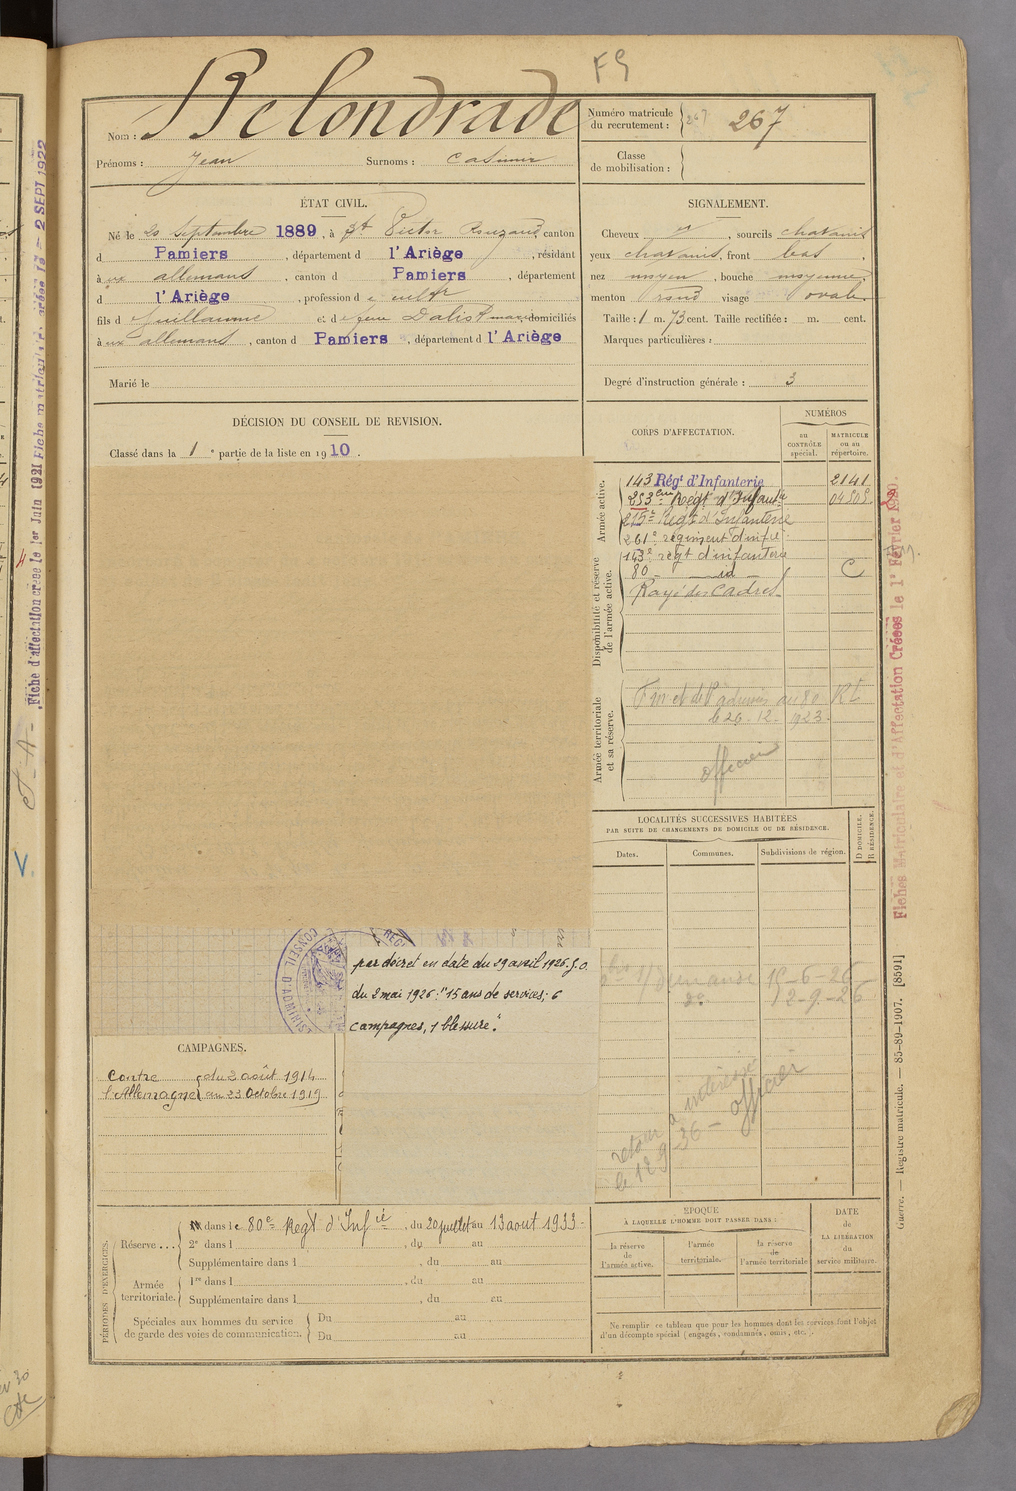 F9
Nom : Belondrade
Prénoms : Jean Surnoms : Casimir
Numéro matricule du recrutement : 267 267
Classe de mobilisation :
ÉTAT CIVIL.
Né le 20 Septembre 1889, à St Victor Rouzaud, canton
d Pamiers, département d l'Ariège, résidant
à ux allemans, canton d Pamiers, département
d l'Ariège, profession d e cultr
fils d Guillaume et d e domiciliés
à ux allemans, canton d Pamiers, département d l'Ariège
Marié le
SIGNALEMENT.
Cheveux, sourcils chatains
yeux chatains, front bas,
nez moyen, bouche moyenne,
menton rond visage ovale.
Taille : 1 m. 73 cent. Taille rectifiée : m. cent.
Marques particulières :
Degré d'instruction générale : 3
DÉCISION DU CONSEIL DE REVISION.
Classé dans la 1 e partie de la liste en 1910.
CORPS D'AFFECTATION.
NUMÉROS
au CONTRÔLE spécial.
MATRICULE ou au répertoire.
Armée active.
143 Régt d'Infanterie 2141
253eme Régt d'Infantie
215e Régt d'Infanterie
261e régiment d'infie
Disponibilité et réserve de l'armée active.
143e régt d'infanterie
80 - id - C
Rayé des Cadres
Armée territoriale et sa réserve.
le 26.12.1923.
officier
LOCALITÉS SUCCESSIVES HABITÉES
PAR SUITE DE CHANGEMENTS DE DOMICILE OU DE RÉSIDENCE.
Dates. Communes. Subdivisions de région. D DOMICILE. R RÉSIDENCE.
demande 15-6-26
do 12-9-26
retour à intéressé
le 12 9-36 - officier
CONSEIL D'ADMINIS
par décret en date du 29 avril 1926. J.O.
du 2 mai 1926 : "15 ans de services; 6
campagnes, 1 blessure".
CAMPAGNES.
Contre l'Allemagne { du 2 août 1914
au 23 Octobre 1919
PÉRIODES D'EXERCICES.
Réserve ... dans le 80e Régt d'Infie, du 20 juillet au 13 aout 1933-
2e dans l, du au
Supplémentaire dans l, du au
Armée territoriale. 1re dans l, du au
Supplémentaire dans l, du au
Spéciales aux hommes du service de garde des voies de communication. Du au
Du au
ÉPOQUE
À LAQUELLE L'HOMME DOIT PASSER DANS :
la réserve de l'armée active.
l'armée territoriale.
la réserve de l'armée territoriale
DATE de LA LIBÉRATION du service militaire.
Ne remplir ce tableau que pour les hommes dont les services font l'objet
d'un décompte spécial (engagés, condamnés, omis, etc.).
Fiches Matriculaire et d'Affectation Créées le 1er Février 1920.
Guerre. — Registre matricule. — 85-89-1907. [8591]
Fiche d'affectation créée le 1er Juin 1921
2 SEPT 1922